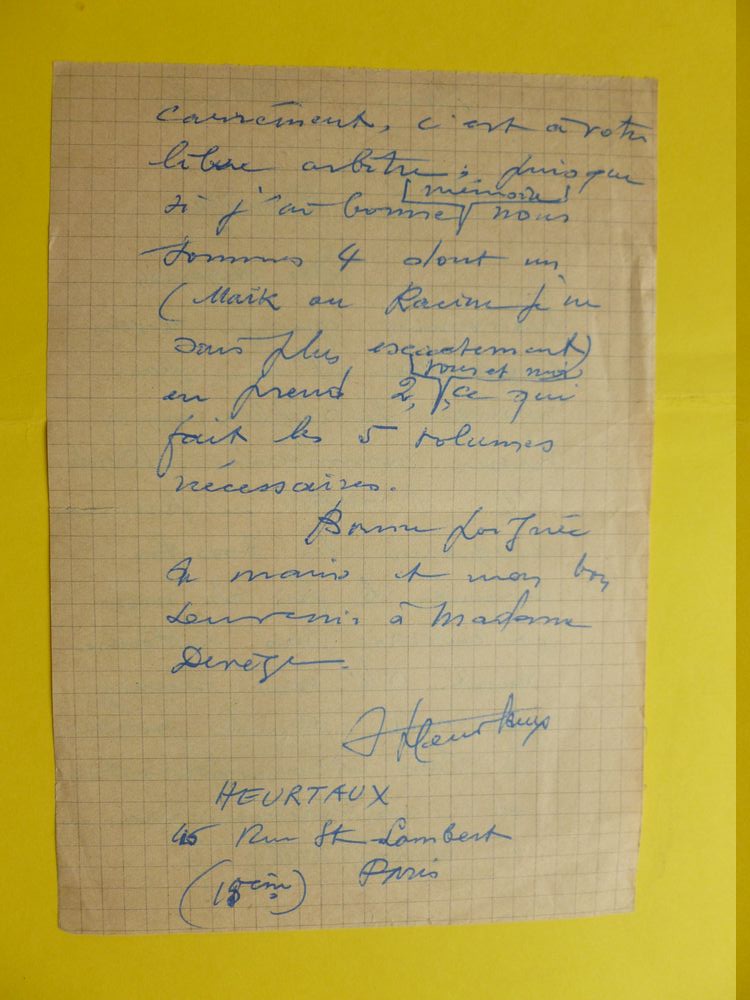 carrément, c'est à votre
libre arbitre ; puisque
si j'ai bonne mémoire, nous
sommes 4 dont un
(Maïk ou Racine je ne
sais plus exactement)
en prend 2, vous et moi, ce qui
fait les 5 volumes
nécessaires.
Bonne poignée
de mains et mon bon
souvenir à Madame
HEURTAUX
45 Rue St Lambert
(15ème) Paris